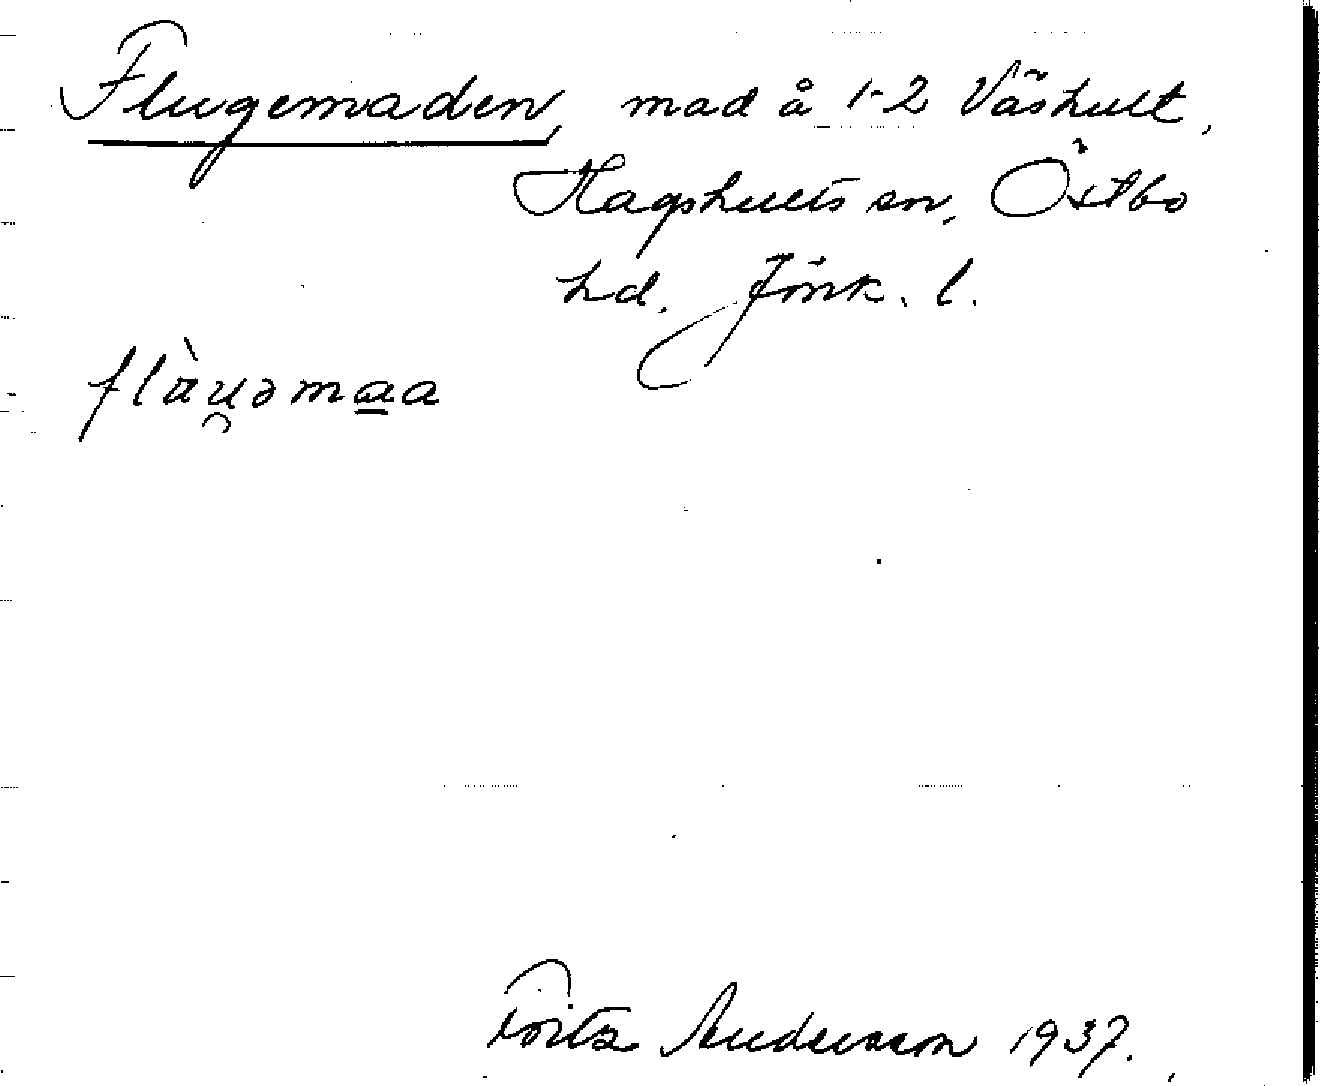 Flugemaden, mad å 1-2 Väshult,
Hagshults sn, Östbo
hd. Jönk. l.
flàu̯əma̲a
Fritz Andersson 1937.